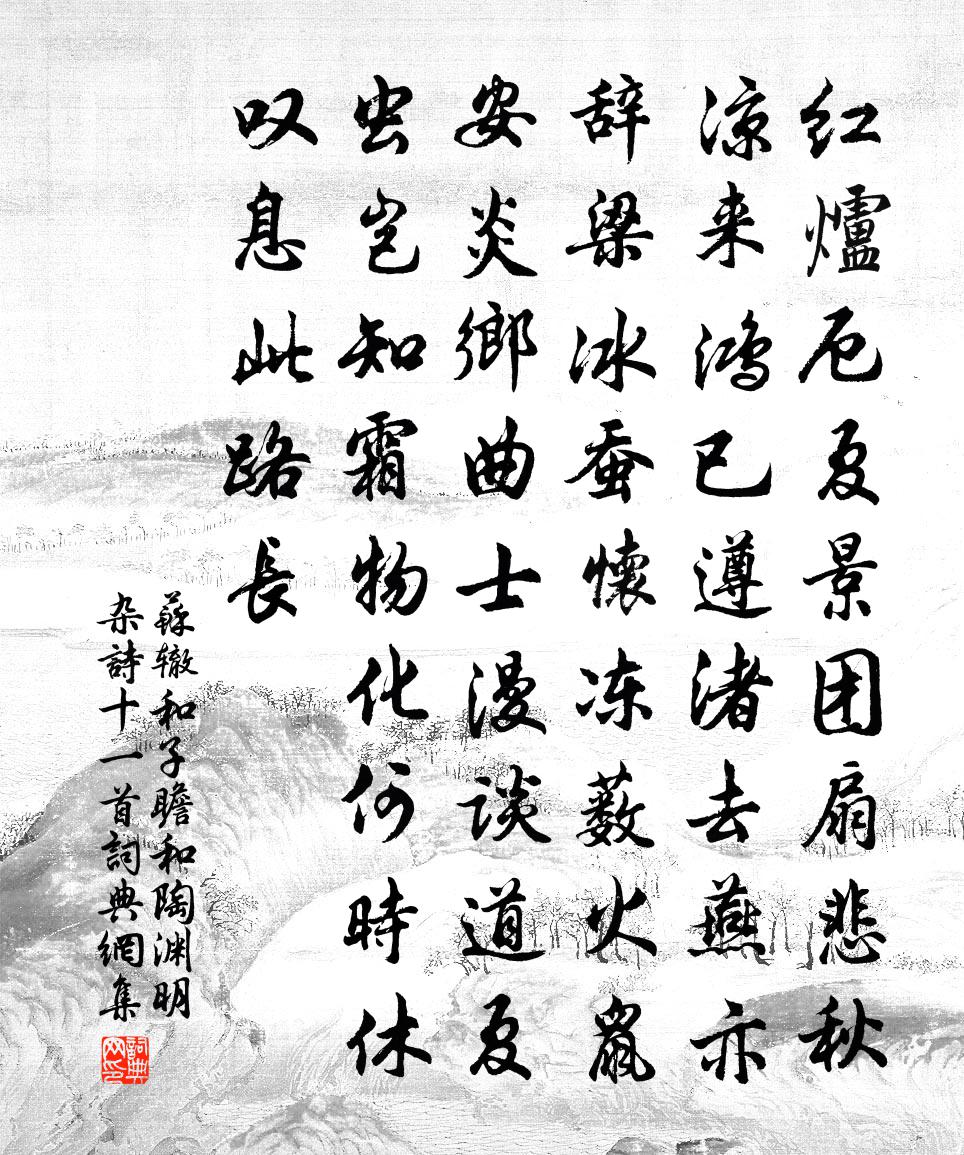 红爐厄夏景团扇悲秋
凉来鸿已遵渚去燕亦
辞梁冰蚕懷冻薮火鼠
安炎鄉曲士漫谈道夏
虫岂知霜物化何時休
叹息此路長
蘇辙和子瞻和陶渊明
杂詩十一首詞典網集
詞典网印